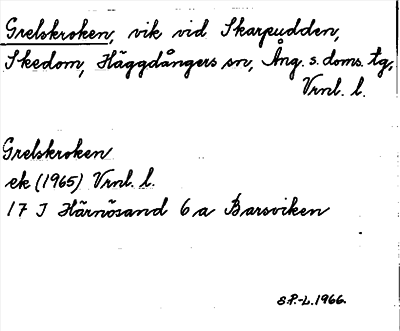 Grelskroken, vik vid Skarpudden,
Skedom, Häggdångers sn, Ång. s. doms. tg,
Vrnl. l.
Grelskroken
ek (1965) Vrnl. l.
17 J Härnösand 6 a Barsviken
S.P.-L. 1966.